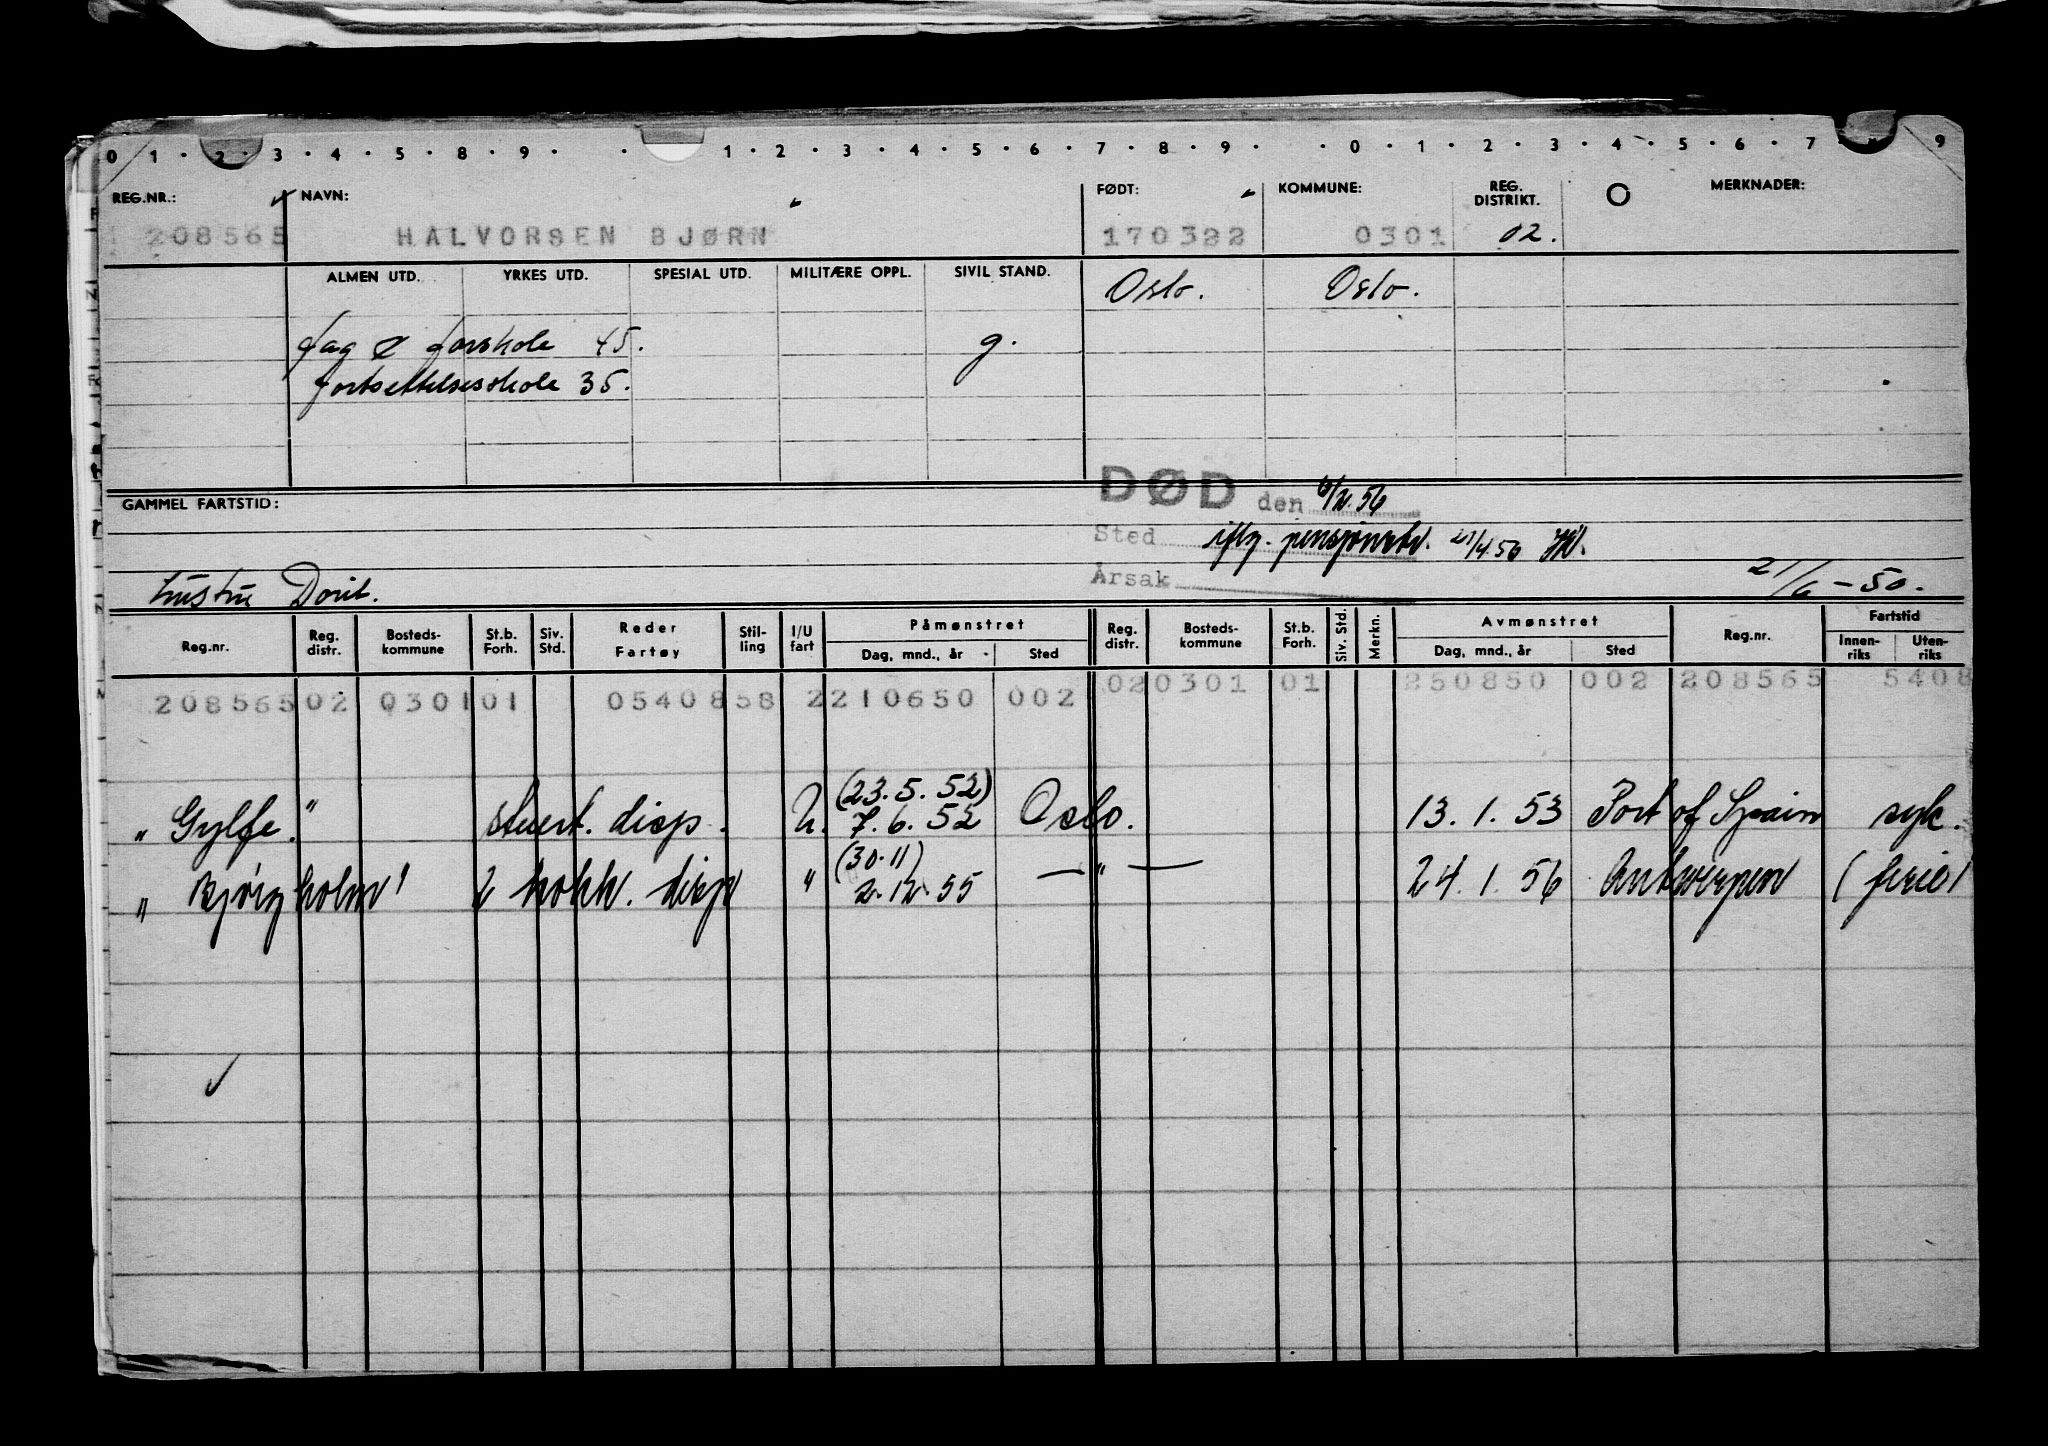 0 1 · 2 · 3 · 4 · 5 · 8 · 9 · · 1 · 2 · 3 · 4 · 5 · 6 · 7 · 8 · 9 · · 0 · 1 · 2 · 3 · 4 · 5 · 6 · 7 · 9
REG.NR.: NAVN: FØDT: KOMMUNE: REG. DISTRIKT. O MERKNADER:
208565 HALVORSEN BJØRN 170322 0301 02.
ALMEN UTD. YRKES UTD. SPESIAL UTD. MILITÆRE OPPL. SIVIL STAND. Oslo. Oslo.
fag & forskole 45. g.
fortsettelsesskole 35.
GAMMEL FARTSTID: DØD den 6/2.56
Sted iflg. pensjonstr. 21/4.56
Årsak 21/6-50.
hustru Dorit.
Reg.nr. Reg. distr. Bosteds-kommune St.b. Forh. Siv. Std. Reder Fartøy Stil-ling I/U fart Påmønstret Dag, mnd., år Sted Reg. distr. Bosteds-kommune St.b. Forh. Siv. Std. Merkn. Avmønstret Dag, mnd., år Sted Reg.nr. Fartstid Innen-riks Uten-riks
208565 02 0301 01 0540858 2 210650 002 02 0301 01 250850 002 208565 5408
(23.5.52)
„Gylfe." stuert. disp. U. 7.6.52 Oslo. 13.1.53 Port of Spain syk.
(30.11)
„Bjørgholm" 2 kokk. disp " 2.12.55 — " — 24.1.56 Antwerpen (ferie)